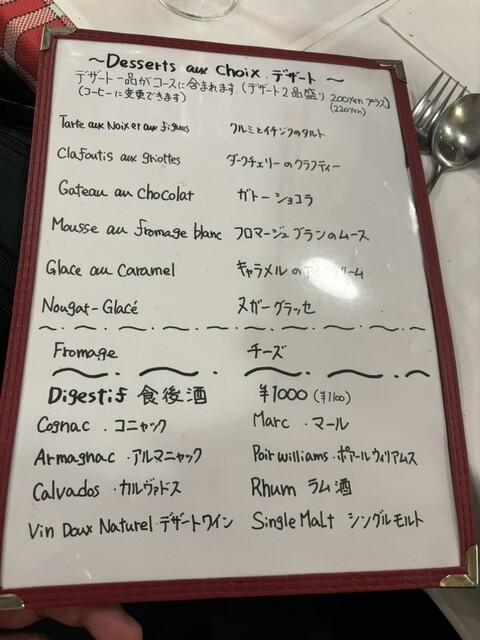 ~Desserts aux Choix. デザート ~
デザート一品がコースに含まれます。(デザート2品盛り 200Yen プラス)
(コーヒーに変更できます) (220Yen)
Tarte aux Noix et aux figues クルミとイチジクのタルト
Clafoutis aux griottes ダークチェリーのクラフティー
Gateau au Chocolat ガトーショコラ
Mousse au fromage blanc フロマージュブランのムース
Glace au Caramel キャラメルのアイスクリーム
Nougat-Glacé ヌガーグラッセ
Fromage チーズ
Digestif 食後酒 ¥1000 (¥1100)
Cognac . コニャック Marc . マール
Armagnac . アルマニャック Poir williams . ポアールウィリアムス
Calvados . カルヴァドス Rhum ラム酒
Vin Doux Naturel . デザートワイン Single Malt シングルモルト